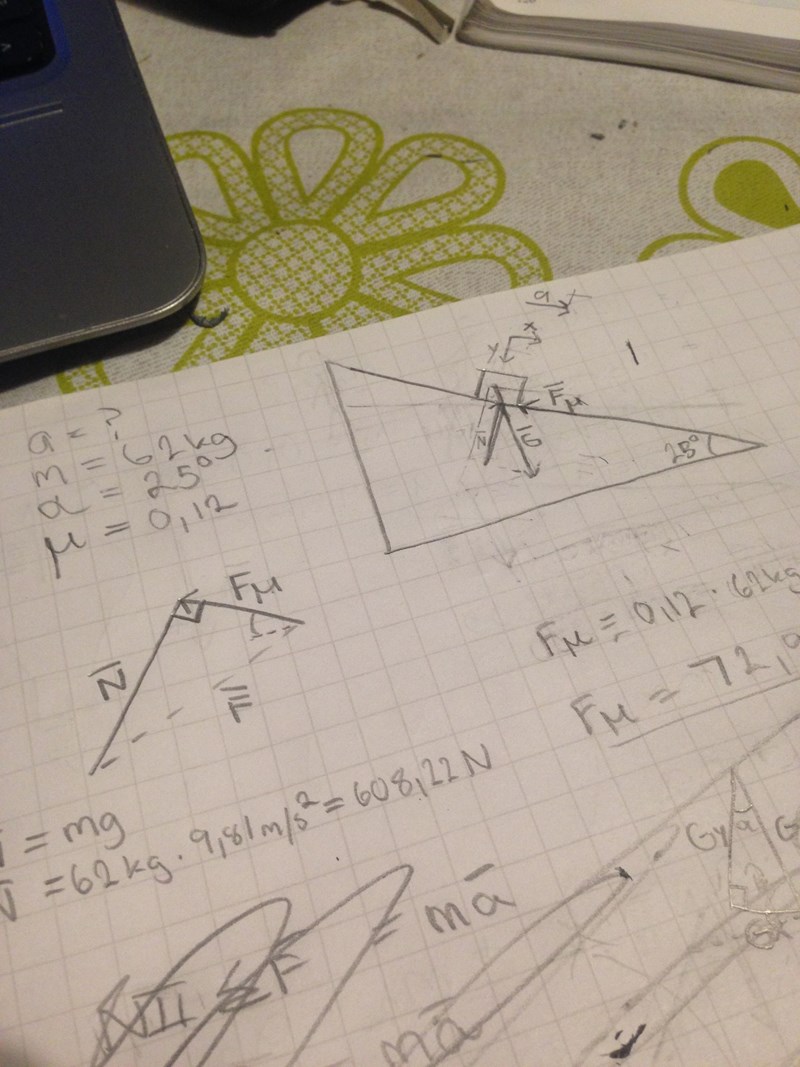 a = ?
m = 62 kg
α = 25°
μ = 0,12
a
x
y x
F̄μ
N̄ Ḡ
25°
Fμ
N̄
Fμ = 0,12 · 62kg
Fμ = 72,9
= mg
= 62kg · 9,81m/s² = 608,22N
= mā
mā
Gy α G
Gx